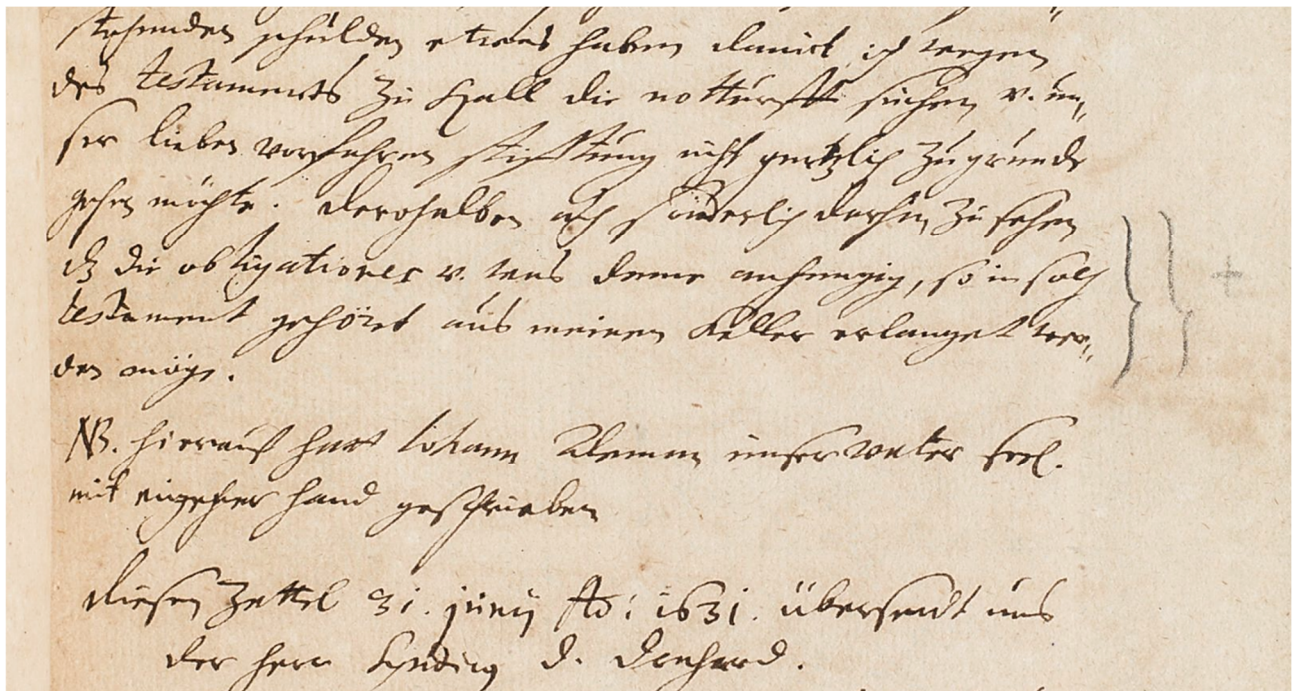 stehenden schulden etwas haben damit ich wegen
des Testaments zu Hall die notturfft suchen v. un„
ser lieben vorfahren stifftung nicht gentzlich zugrunde
gehen möchte. derohalben auch sonderlich dahin zu sehen
dz die obligationes v. was deme anhengig, so in solch
testament gehöret aus meinem Keller erlanget wer„
den möge.
NB. hierauf hatt Johann Alemann unser vater seel.
mit eigener hand geschrieben
diesen Zettel 31. junij Ao: 1631. übersendt uns
der herr Syndicus D. Denhard.